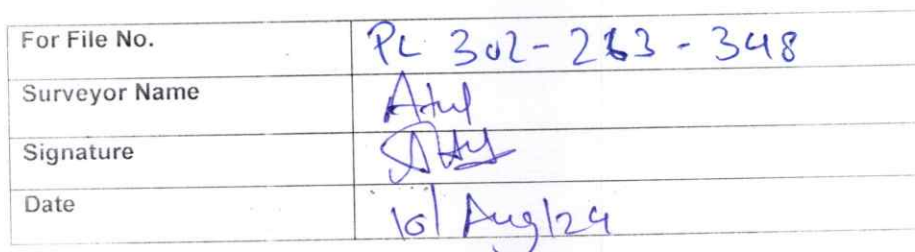 For File No. PL 302-263-348
Surveyor Name Atul
Signature
Date 10/Aug/24